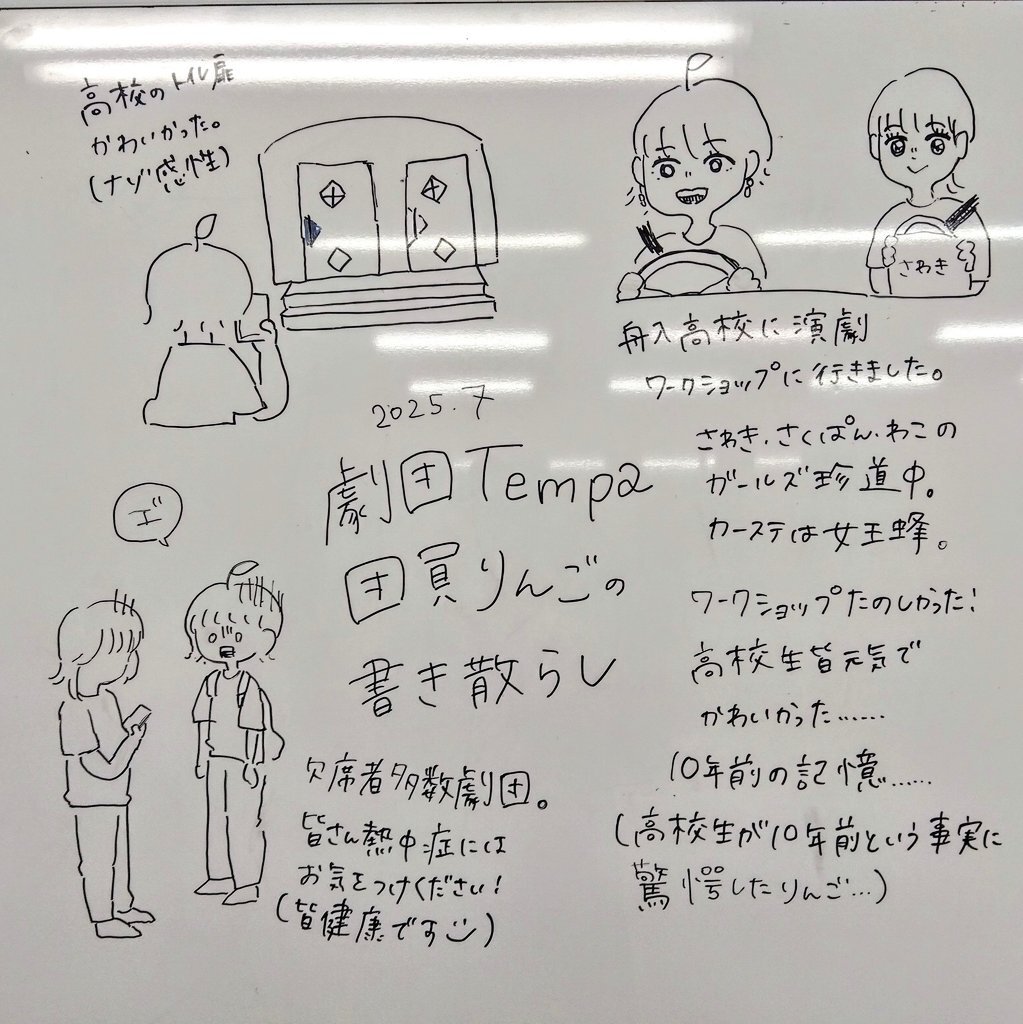 高校のトイレ扉
かわいかった。
(ナゾ感性)
さわき
舟入高校に演劇
ワークショップに行きました。
さわき、さくぱん、わこの
ガールズ珍道中。
カーステは女王蜂。
ワークショップたのしかった!
高校生皆元気で
かわいかった……
10年前の記憶……
(高校生が10年前という事実に
驚愕したりんご…)
2025.7
劇団Tempa
団員りんごの
書き散らし
エ゛
欠席者多数劇団。
皆さん熱中症には
お気をつけください!
(皆健康です)